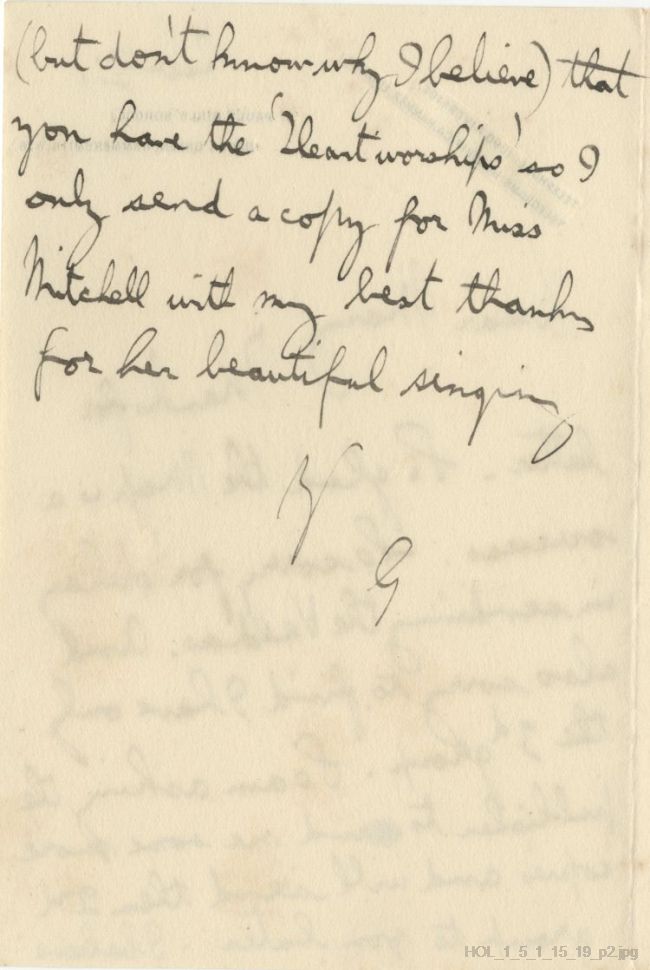 (but don't know why I believe) that
you have the 'Heart worships' so I
only send a copy for Miss
Mitchell with my best thanks
for her beautiful singing
Y
G
HOL_1_5_1_15_19_p2.jpg